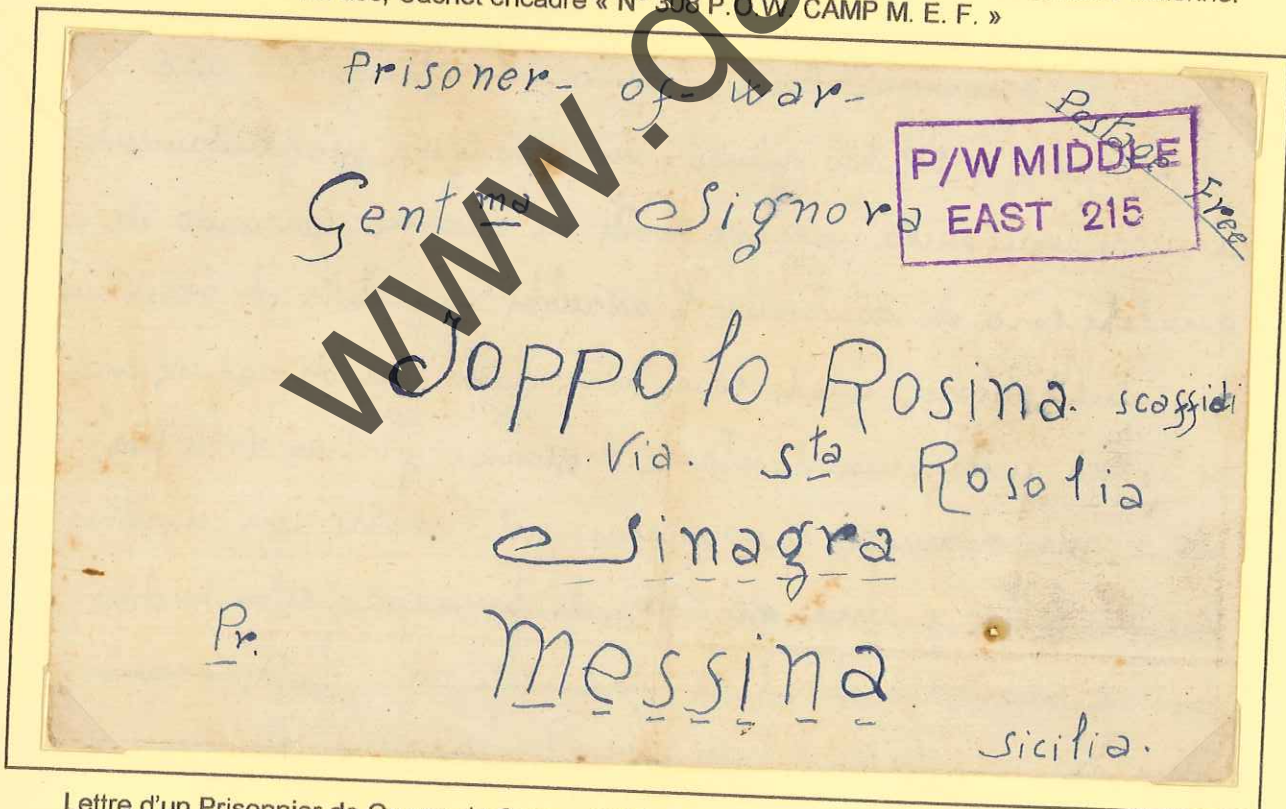 Cachet encadré « N° 308 P.O.W. CAMP M. E. F. »
Prisoner - of - war -
Postage Free
P/W MIDDLE
EAST 215
Gent ma Signora
Joppolo Rosina. scaffidi
Via. Sta Rosolia
Sinagra
Pr. Messina
Sicilia.
Lettre d'un Prisonnier de
www.q